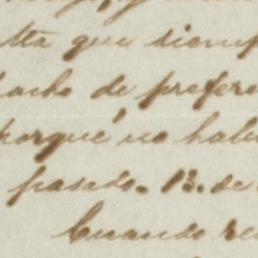 que siemp
acho de prefere
porqué no habi
pasado. 13. de
Cuando re